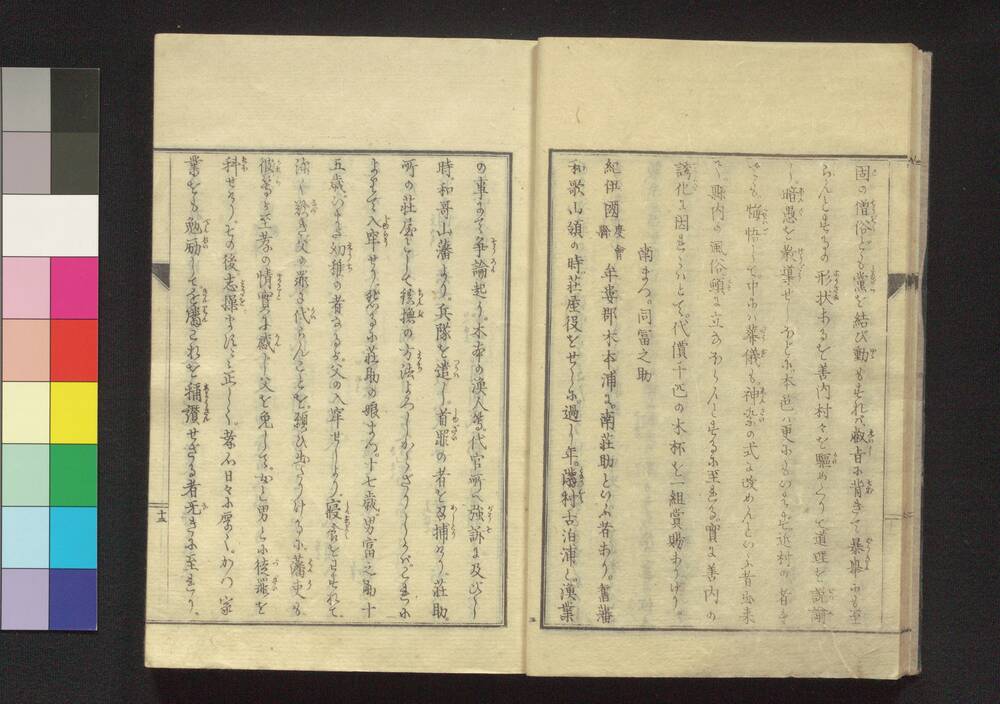 固の僧俗ども黨を結び動もすれバ厳旨に背きて暴挙にも至
らんとするの形状あるを善内村々を駆めぐりて道理を説諭
し暗愚を誘導せしほどに本邑ハ更にもいはず近村の者ま
でも悔悟して中にハ葬儀も神祭の式に改めんといふ者出来
て縣内の風俗頓に立なほらんとするに至れる實に善内の
誘化に因れりとて代價千匹の木杯を一組賞賜ありけり
南まつ 同富之助
紀伊國 度會縣 牟婁郡木本浦に南荘助といふ者あり舊藩
和歌山領の時荘屋役をせしに過し年隣村古泊浦と漁業
の事にて争論起り木本の漁人等代官所へ強訴に及びし
時和哥山藩より兵隊を遣し首罪の者を召捕り荘助
所の荘屋として鎮撫の方法よろしからざりしかバどもつひに
よりて入牢せり然るに荘助の娘まつ十七歳男富之助十
五歳いまだ幼稚の者なるに父の入牢せしより寝食をわすれて
深く歎き父の罪に代らんことを願ひ出たりけるに藩吏も
彼等が至孝の情實に感じ父を免して家に男に徒罪を
科せり その後志操ますます正しく孝心日々に厚くかつ家
業をも勉励して遠これを稱讃せざる者无きに至れり
十三